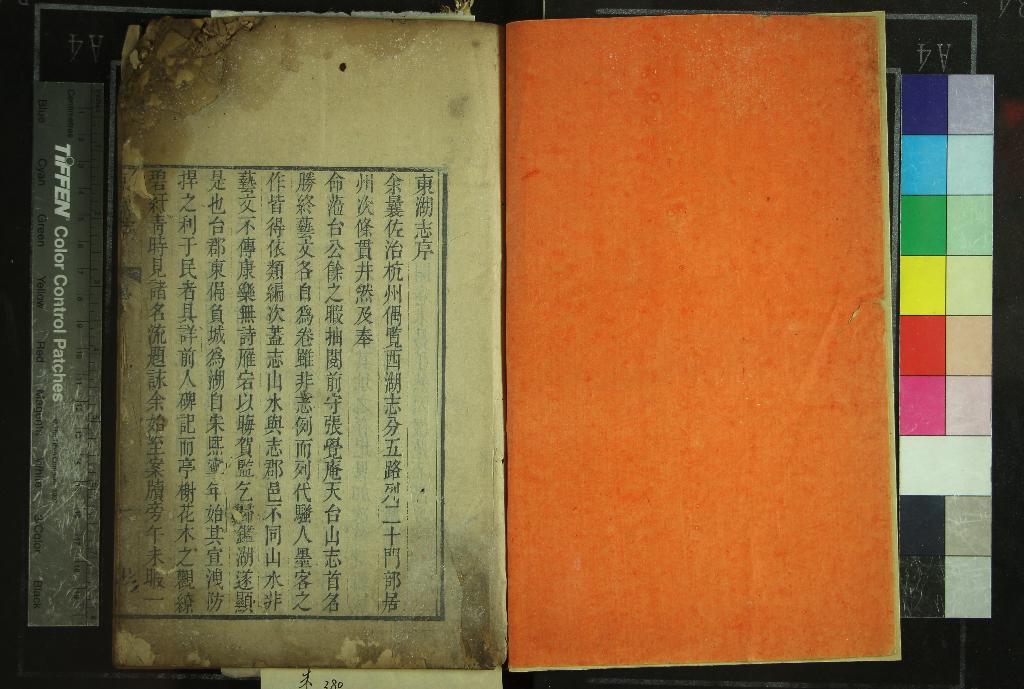 東湖志序
余曩佐治杭州偶覽西湖志分五路列二十門部居
州次條貫井然及奉
命蒞台公餘之暇抽閱前守張覺庵天台山志首名
勝終藝文各自爲卷雖非志例而列代騷人墨客之
作皆得依類編次蓋志山水與志郡邑不同山水非
藝文不傳康樂無詩雁宕以晦賀監乞歸鑑湖遂顯
是也台郡東偏負城爲湖自宋熙寧年始其宣洩防
捍之利于民者具詳前人碑記而亭榭花木之觀繚
碧紆青時見諸名流題詠余始至案牘旁午未暇一
TIFFEN Color Control Patches
Centimetres
Blue
Cyan
Green
Yellow
Red
Magenta
White
3/Color
Black
A4
A4
朱 280